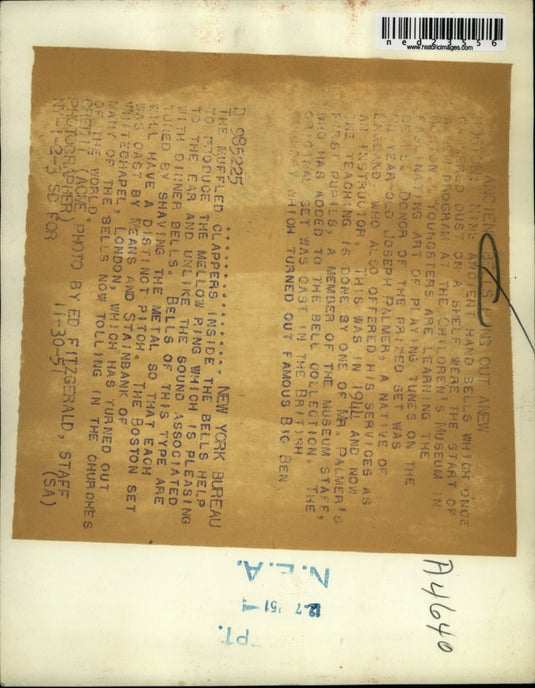 ned23556
www.historicimages.com
ANCIENT BELLS RING OUT ANEW
NINE ANCIENT HAND BELLS WHICH ONCE
DUST ON A SHELF WERE THE START OF
PROGRAM AT THE CHILDREN'S MUSEUM IN
BOSTON. YOUNGSTERS ARE LEARNING THE
ART OF PLAYING TUNES ON THE
BELLS. DONOR OF THE PRIZED SET WAS
YEAR-OLD JOSEPH PALMER, A NATIVE OF
ENGLAND WHO ALSO OFFERED HIS SERVICES AS
AN INSTRUCTOR. THIS WAS IN 1944 AND NOW
THE TEACHING IS DONE BY ONE OF MR. PALMER'S
FIRST PUPILS, A MEMBER OF THE MUSEUM STAFF,
WHO HAS ADDED TO THE BELL COLLECTION. THE
ORIGINAL SET WAS CAST IN THE BRITISH
FOUNDRY WHICH TURNED OUT FAMOUS BIG BEN.
B 985225 .............. NEW YORK BUREAU
THE MUFFLED CLAPPERS INSIDE THE BELLS HELP
TO PRODUCE THE MELLOW RING WHICH IS PLEASING
TO THE EAR AND UNLIKE THE SOUND ASSOCIATED
WITH DINNER BELLS. BELLS OF THIS TYPE ARE
TUNED BY SHAVING THE METAL SO THAT EACH
WILL HAVE A DISTINCT PITCH. THE BOSTON SET
WAS CAST BY MEANS AND STAINBANK OF
WHITECHAPEL, LONDON, WHICH HAS TURNED OUT
MANY OF THE BELLS NOW TOLLING IN THE CHURCHES
OF THE WORLD.
CREDIT (ACME PHOTO BY ED FITZGERALD, STAFF
PHOTOGRAPHER) 11-30-51 (SA)
NY-1-2-3 SD FOR
A4640
N.E.A.
12 7 '51
PT.